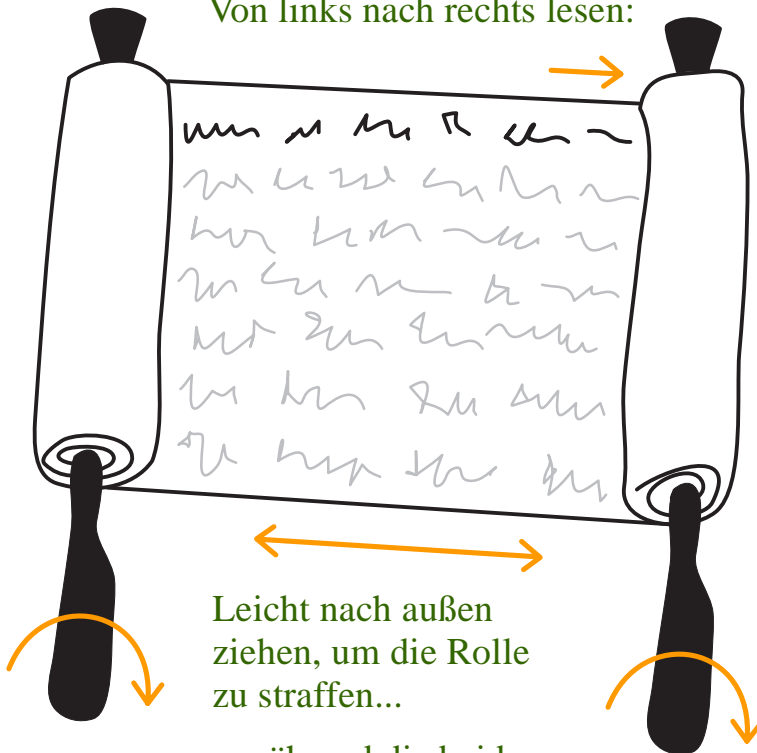 Von links nach rechts lesen:
Leicht nach außen
ziehen, um die Rolle
zu straffen...